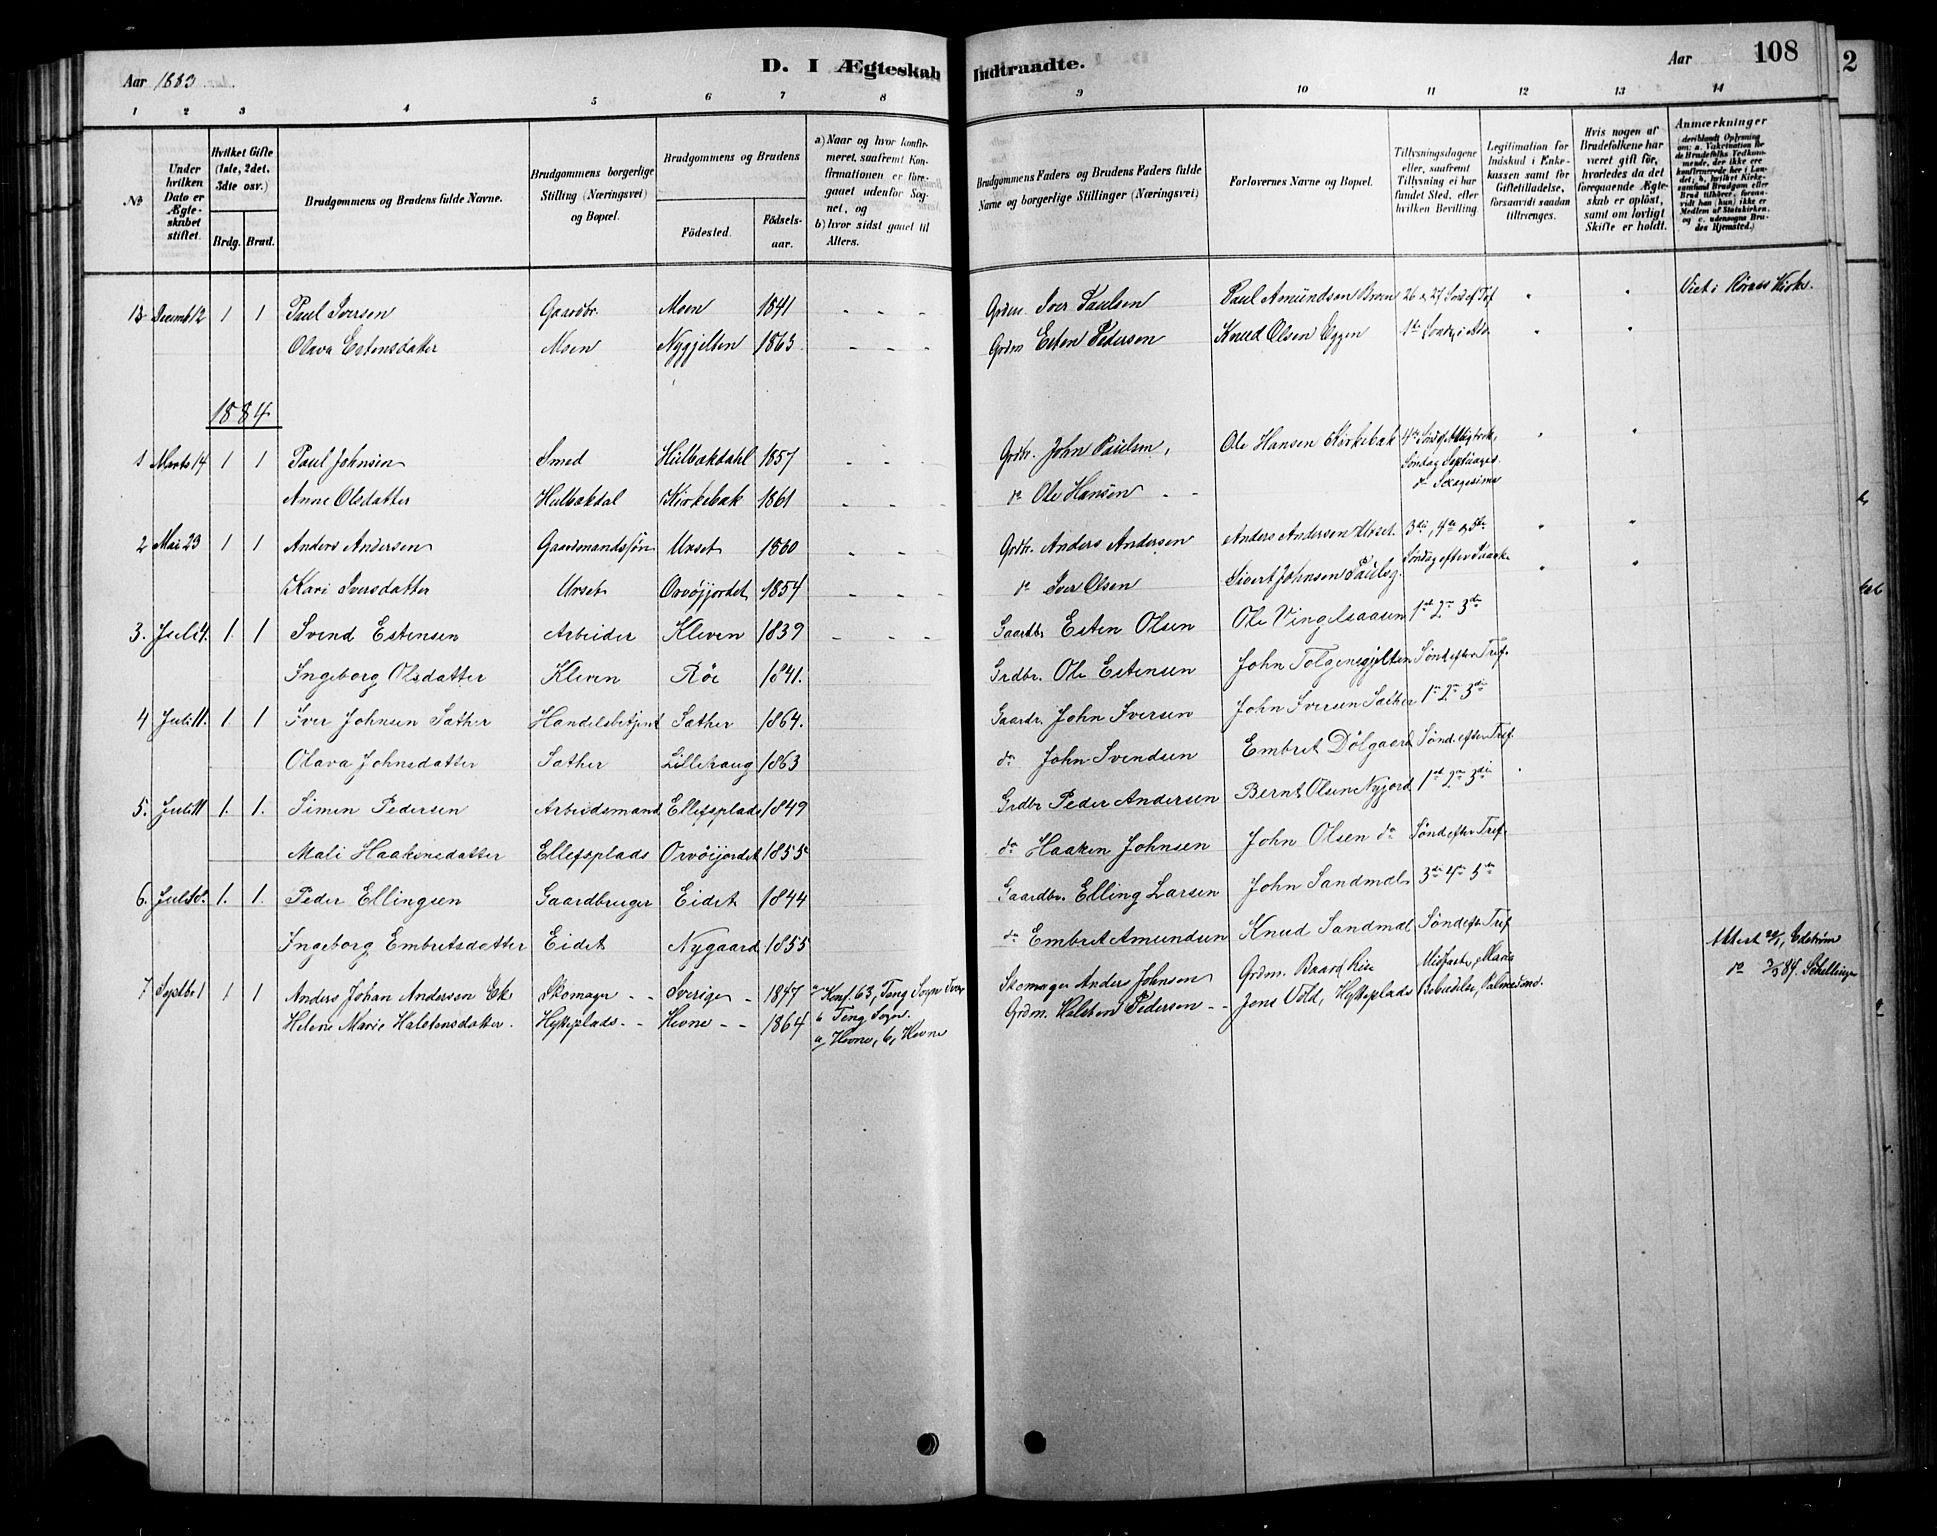 Aar 1883
D. I Ægteskab Indtraadte.
Aar
108
2
1 2 3 4 5 6 7 8 9 10 11 12 13 14
No
Under hvilken Dato er Ægteskabet stiftet.
Hvilket Gifte (1ste, 2det, 3die osv.)
Brdg. Brud.
Brudgommens og Brudens fulde Navne.
Brudgommens borgerlige Stilling (Næringsvei) og Bopæl.
Brudgommens og Brudens
Fødested. Fødselsaar.
a) Naar og hvor konfirmeret, saafremt Konfirmationen er foregaaet udenfor Sognet, og
b) hvor sidst gaaet til Alters.
Brudgommens Faders og Brudens Faders fulde Navne og borgerlige Stillinger (Næringsvei)
Forlovernes Navne og Bopæl.
Tillysningsdagene eller, saafremt Tillysning ei har fundet Sted, efter hvilken Bevilling
Legitimation for Indskud i Enkekassen samt for Giftetilladelse, forsaavidt saadan tiltrænges.
Hvis nogen af Brudefolkene har været gift før, hvorledes da det foregaaende Ægteskab er opløst, samt om lovligt Skifte er holdt.
Anmærkninger
13 Decemb 12 1 1 Paul Iversen Gaardbr. Moen 1841 - - - Grdm. Iver Paulsen Paul Amundsen Moen 26 & 27 Sønd ef Tref " " Viet i Røraas Kirke.
Olava Estensdatter Moen Nygjelten 1863 - - - Grdm Esten Pedersen Knud Olsen Eggen 1ste Søndag i Adv. " "
1884
1 Marts 14 1 1 Paul Johnsen Smed Hulbækdahl 1857 - - Grdbr. John Paulsen, Ole Hansen Kirkebak 4de Sønd ef Helligtrek, " "
Søndag Septuages.
Anne Olsdatter Hulbækdal Kirkebak 1861 - - - do Ole Hansen - - do Sexagesima
2 Mai 23 1 1 Anders Andersen Gaardmandssøn Urset 1860 - - - Grdbr. Anders Andersen Anders Andersen Urset. 3die, 4de & 5te " "
Kari Iversdatter Urset Orvøjjordet 1854 - - - do Iver Olsen Sivert Johnsen Paulsg. Søndag efter Paaske " "
3. Juli 4. 1. 1 Svend Estensen Arbeider Kleven 1839 - - - Gaardbr. Esten Olsen Ole Vingelsaasen 1ste 2den 3die
Ingeborg Olsdatter Kleven Røe 1841. Grdbr. Ole Estensen John Tolgensgjelten Sønd efter Tref.
4 Juli 11. 1 1 Iver Johnsen Sæther Handelsbetjent Sæther 1864. Gaardr. John Iversen John Iversen Sæther 1ste 2den 3die
Olava Johnsdatter Sæther Lillehaug 1863 do John Svendsen Embret Dølgaard Sønd. efter Tref.
5. Juli 11 1. 1. Simen Pedersen Arbeidsmand Ellefsplads 1849 Grdbr Peder Andersen Bernt Olsen Nyjord 1ste 2den 3die
Mali Haakensdatter Ellefsplads Orvøijordet 1855 do Haaken Johnsen John Olsen do Sønd efter Tref.
6. Juli 1. 1. Peder Ellingsen Gaardbruger Eidet 1844 Gaardbr. Elling Larsen John Sandmæl 3die 4de 5te
Ingeborg Embretsdatter Eidet Nygaard 1855 do Embret Amundsen Knud Sandmæl Sønd efter Tref
7 Septbr 1 1 1 Anders Johan Andersen Ek Skomager - - Sverige - 1847 a Konf. 63, Teng Sogn Sver Skomager Anders Johnsen Grdm. Baard Rise Midfaste, Mariæ Attest 29/1, Edstrøm
b Teng Sogn. do 3/3 84. Schellinge
Helene Marie Halstensdatter. Hytteplads - - Hevne - - 1864 a, Hevne, b, Hevne Grdm. Halsten Pedersen - - Jens Vold, Hytteplads Bebudelse, Palmesønd.